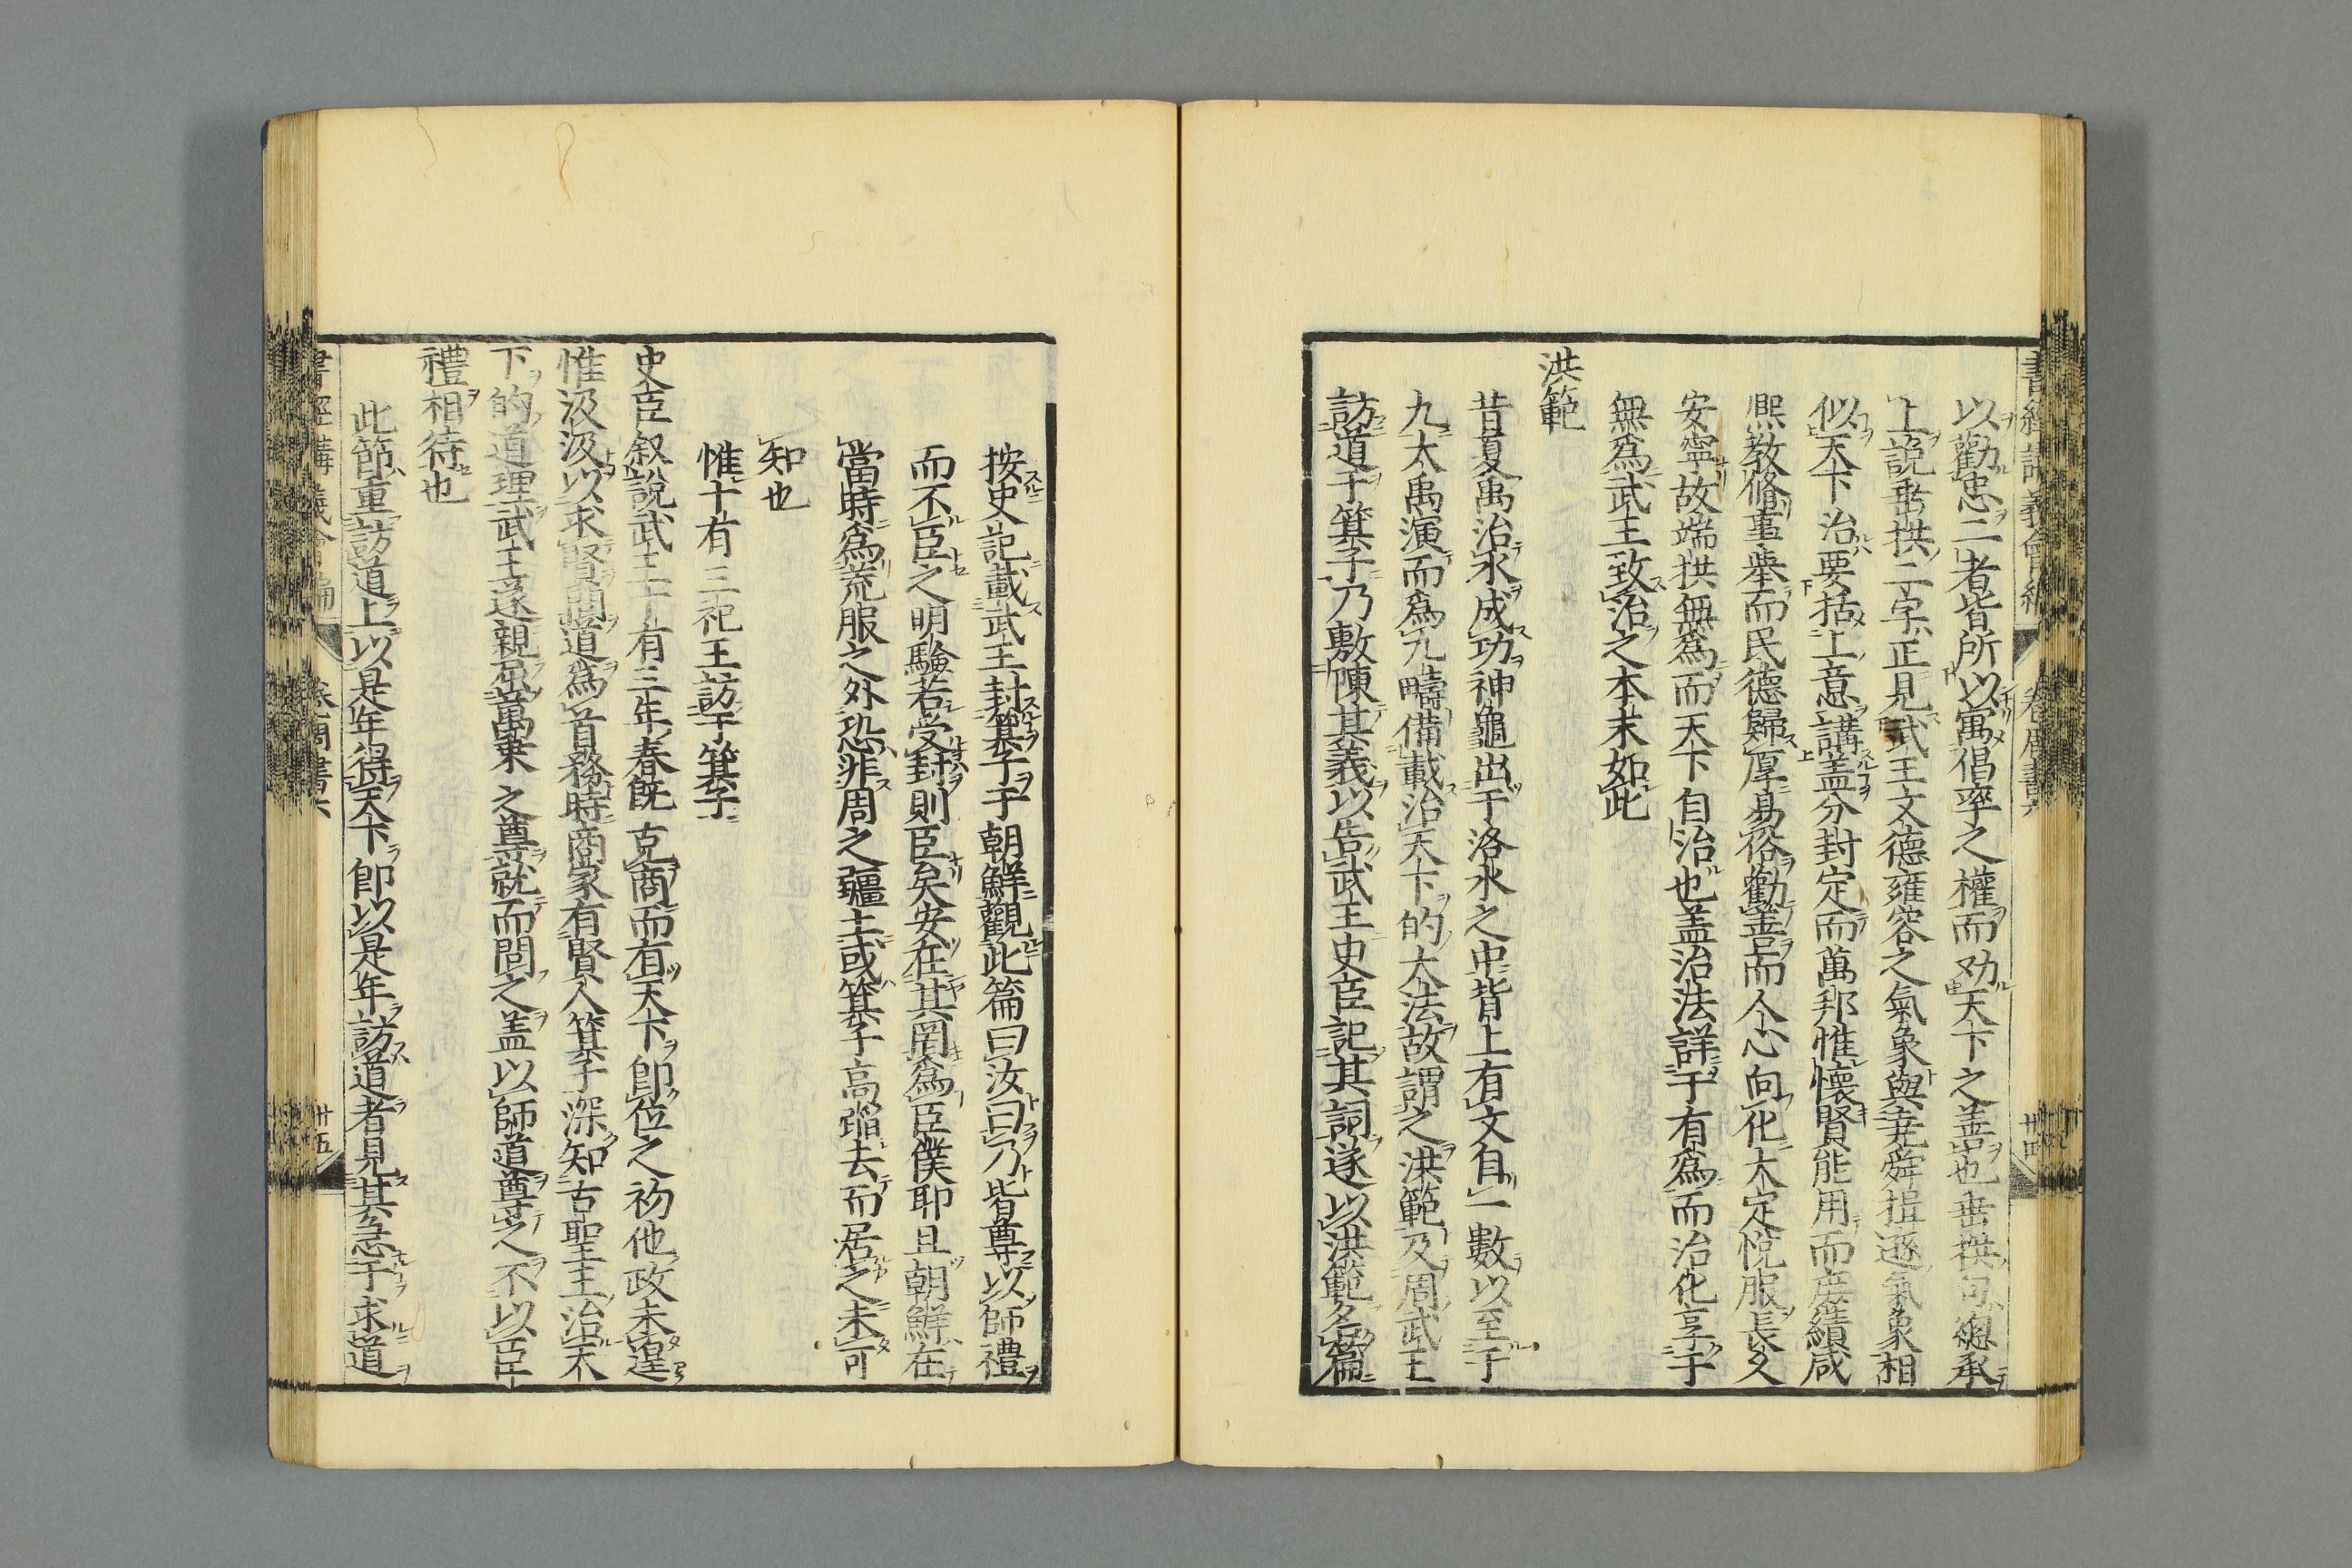 以勸忠二者皆所以寓倡率之權而劝天下之善也垂拱句總承
上說垂拱二字正見武王文德雍容之氣象與堯舜揖遜氣象相
似天下治要括上意講盖分封定而萬邦惟懷賢能用而庶績咸
熈教脩亊舉而民德歸厚易俗勸善而人心向化大定悅服長久
安寧故端拱無爲而天下自治也盖治法詳于有爲而治化享于
無爲武王致治之本末如此
洪範
昔夏禹治水成功神龜出于洛水之中背上有文自一數以至于
九大禹演而爲九疇備載治天下的大法故謂之洪範及周武王
訪道于箕子乃敷陳其義以告武王史臣記其詞遂以洪範名篇
按史記載武王封箕子于朝鮮觀此篇曰汝曰乃皆尊以師禮
而不臣之明驗若受封則臣矣安在其罔爲臣僕耶且朝鮮在
當時爲荒服之外恐非周之疆土或箕子高蹈去而居之未可
知也
惟十有三祀王訪于箕子
史臣叙說武王十有三年春旣克商而有天下卽位之初他政未遑
惟汲汲以求賢問道爲首務時商家有賢人箕子深知古聖王治天
下的道理武王遂親屈萬乗之尊就而問之盖以師道尊之不以臣
禮相待也
此節重訪道上以是年得天下卽以是年訪道者見其急于求道